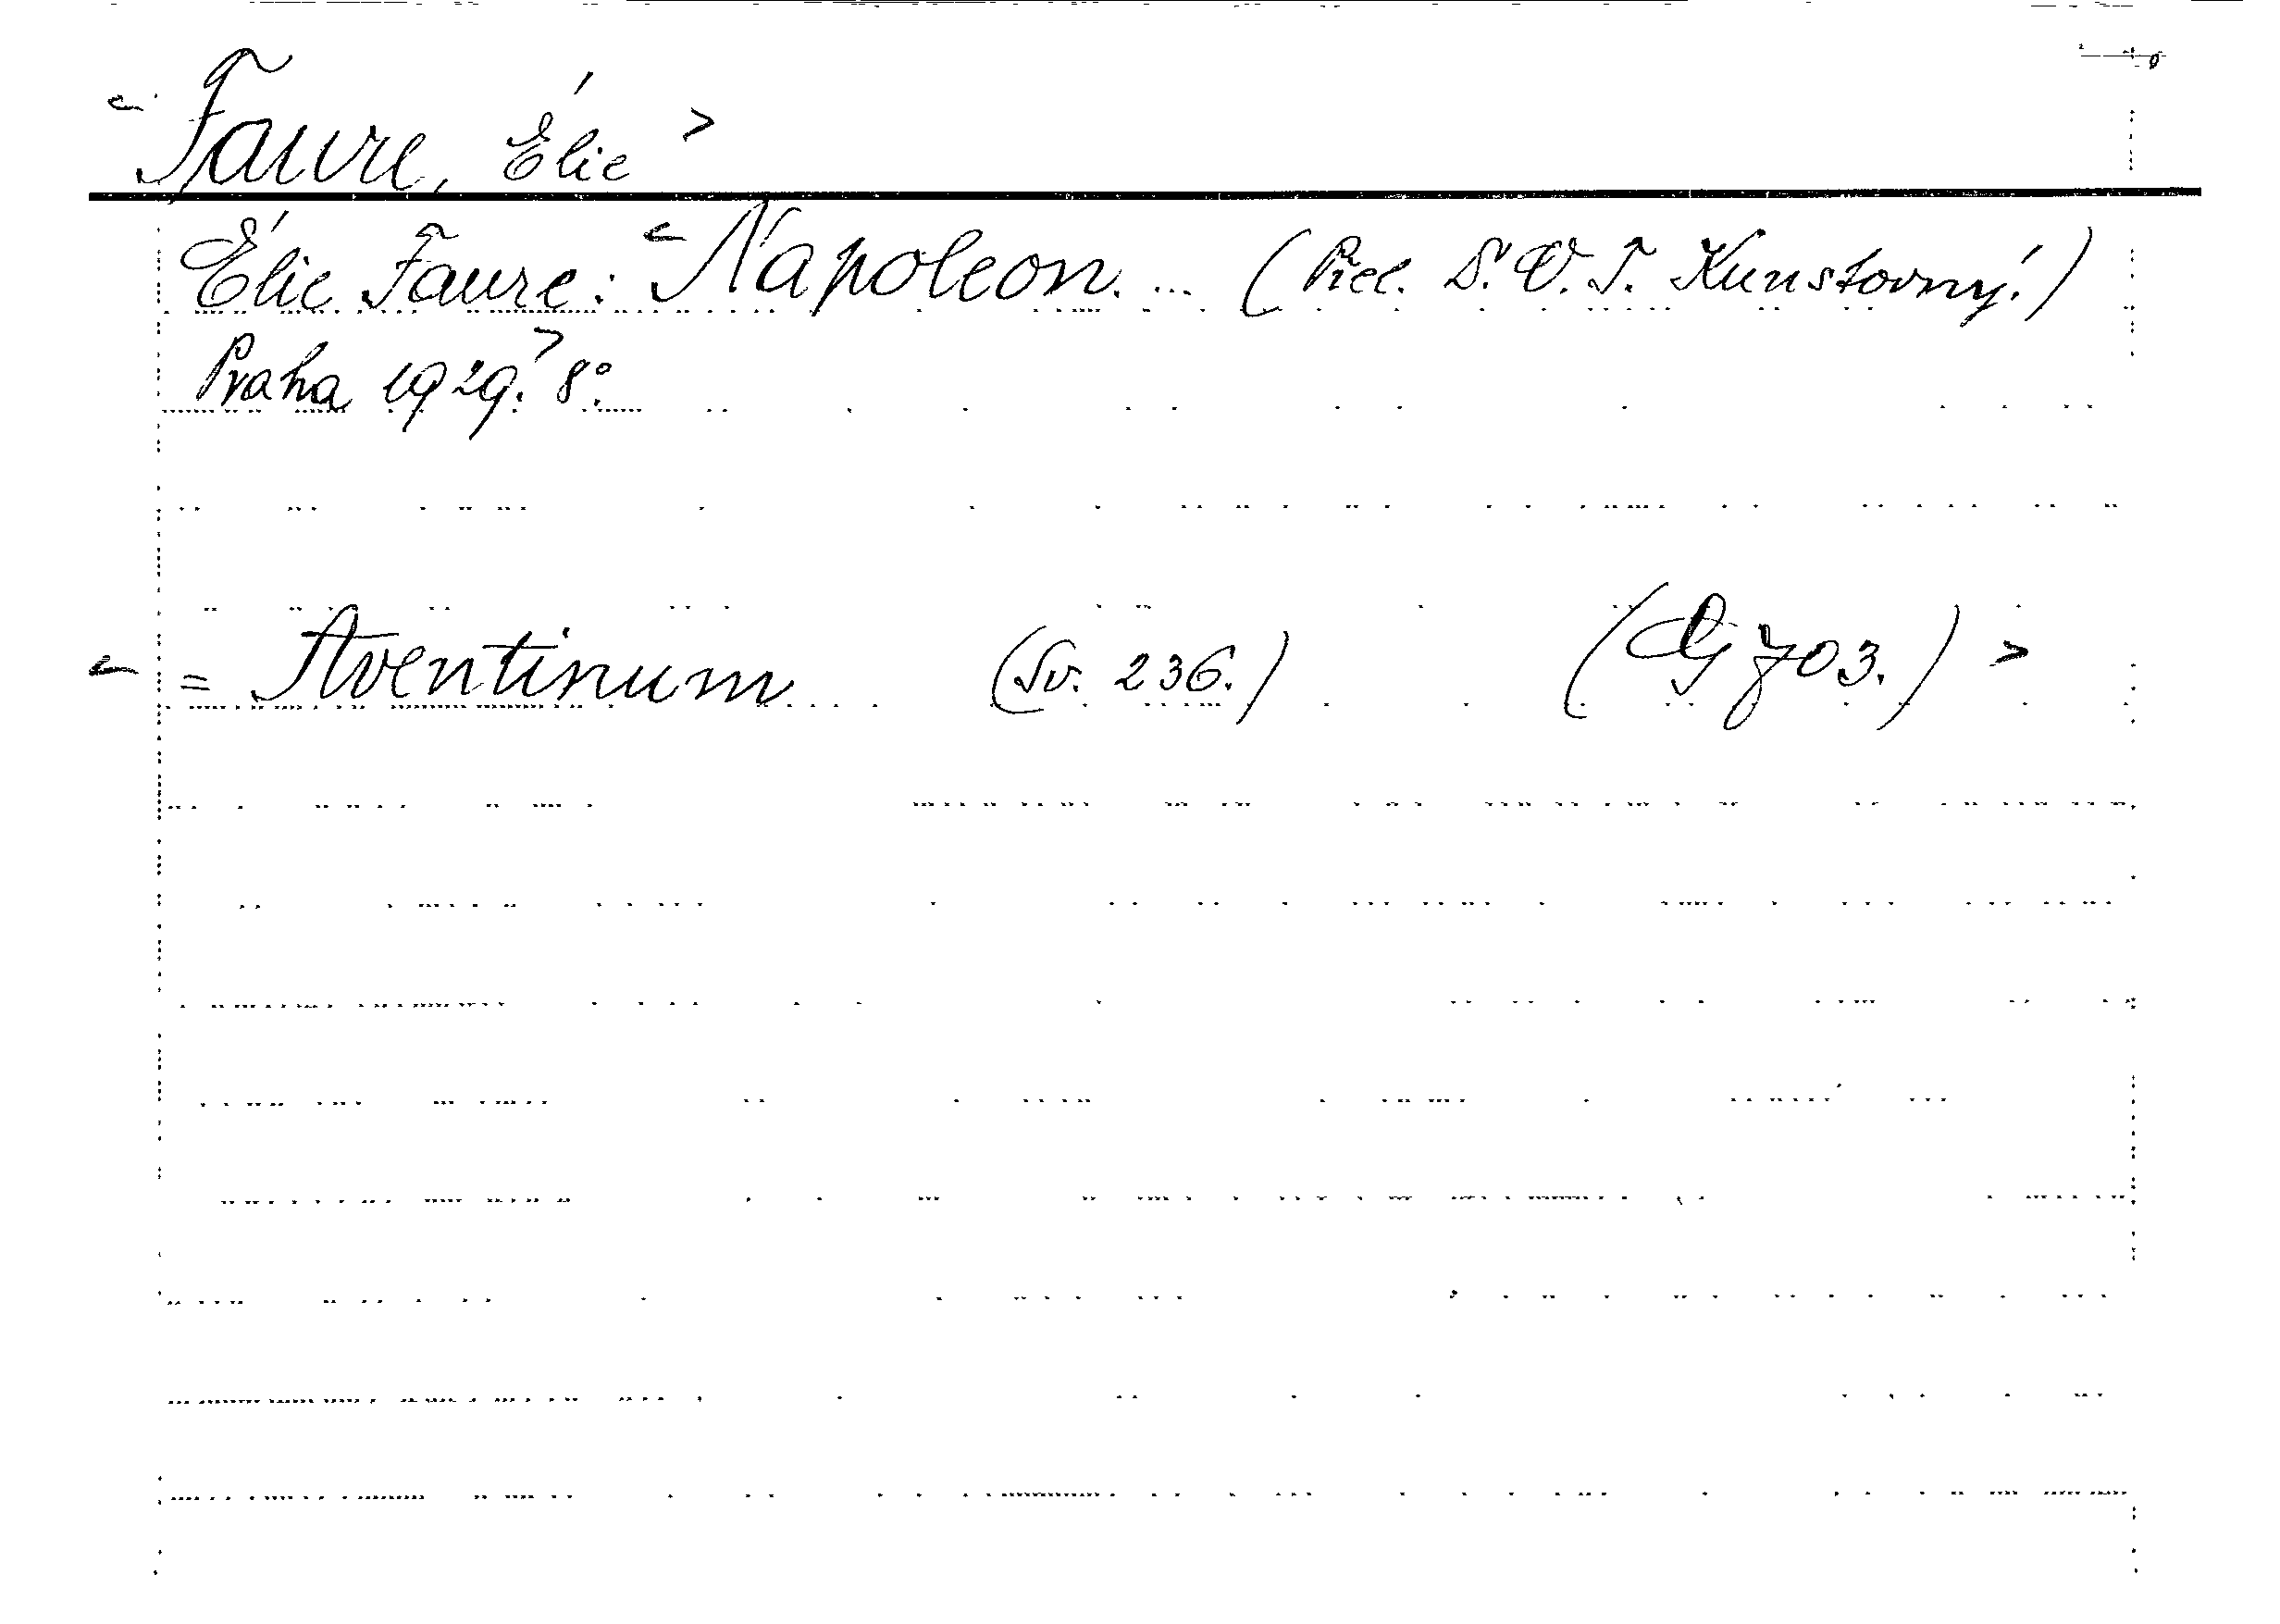 < Faure, Élie >
Élie Faure: < Napoleon. ... (Přel. S. V. T. Kunstovný.)
Praha 1929. > 8°.
< = Aventinum (Sv. 236.) (G 703.) >